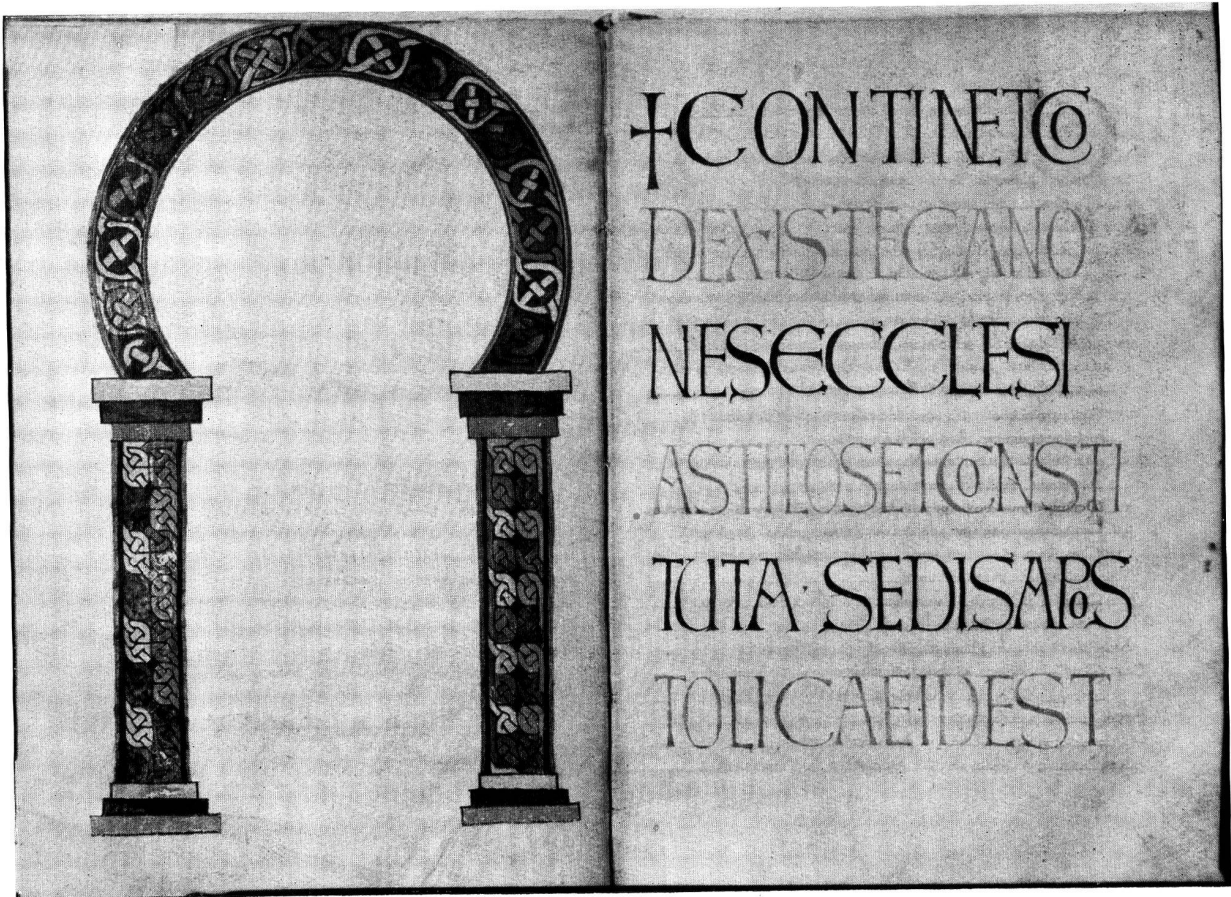 +CONTINETCO
DEXISTECANO
NESECCLESI
ASTICOSETCONSTI
TUTA·SEDISAPOS
TOLICAEIDEST